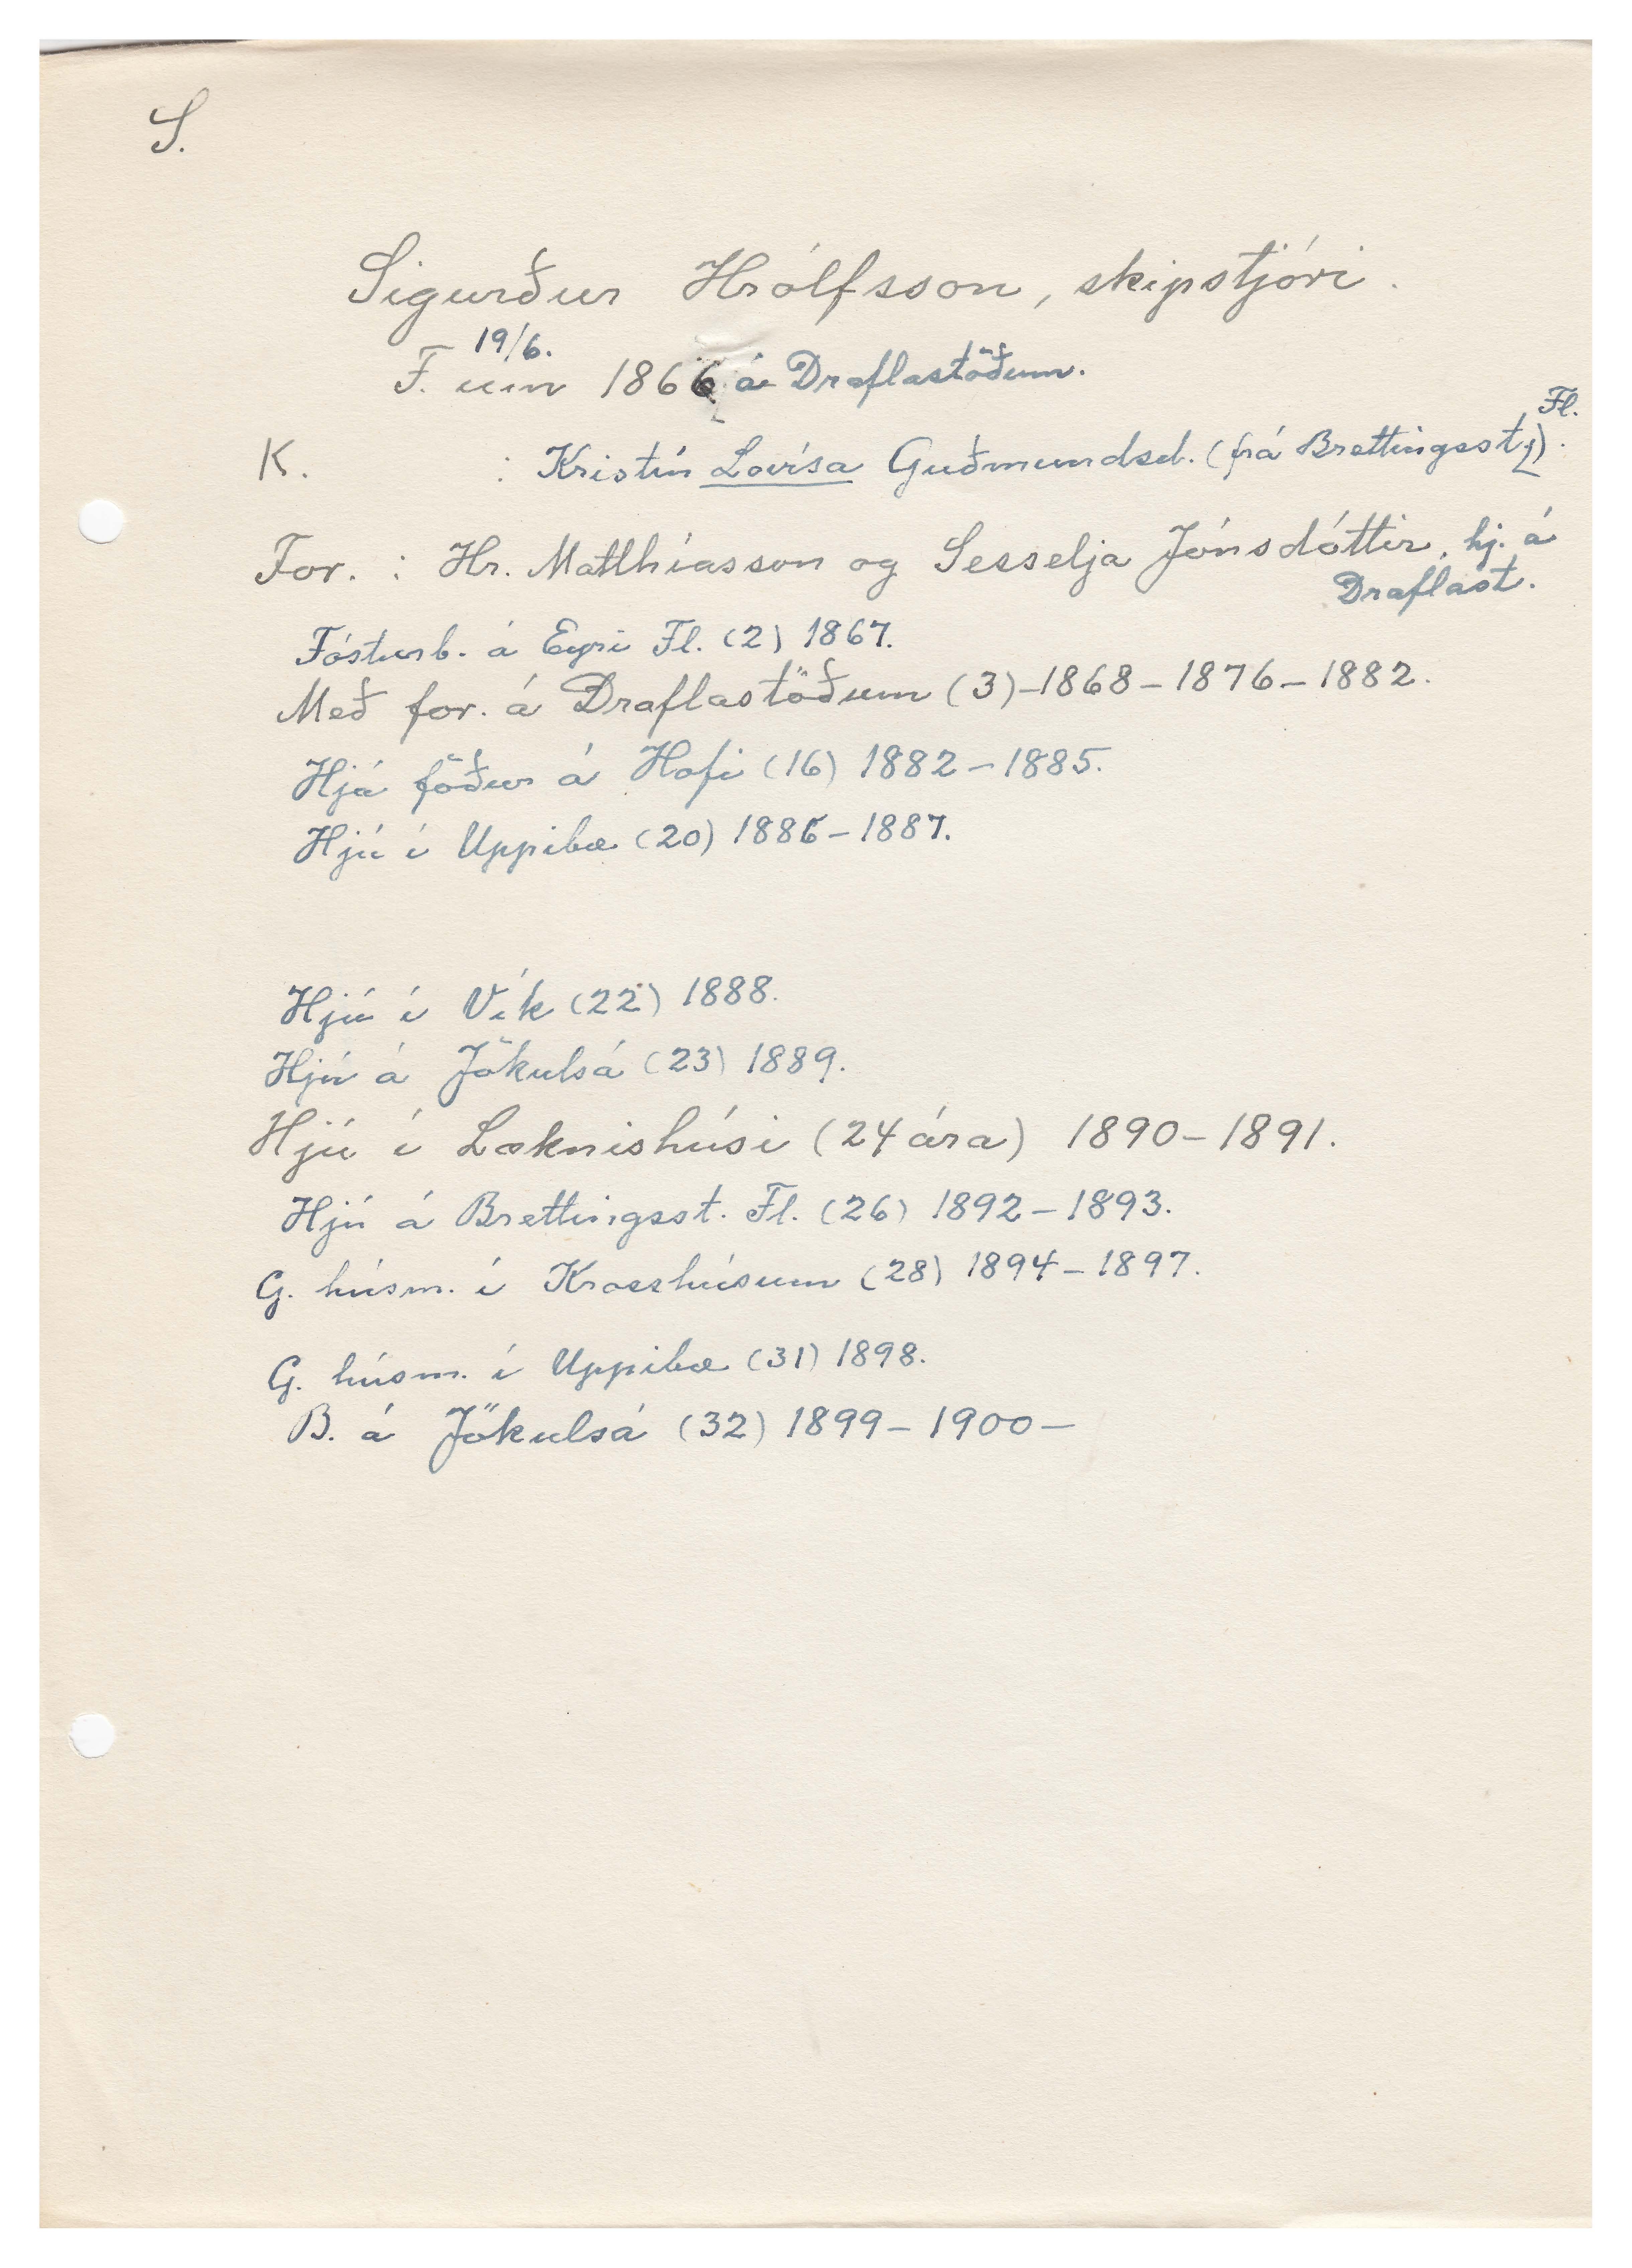 S.
Sigurður Hrólfsson, skipstjóri.
19/6.
F. um 1866 á Draflastöðum.
Fl.
K. : Kristín Lovísa Guðmundsd. (frá Brettingsst.).
For. : Hr. Matthíasson og Sesselja Jónsdóttir, hj. á
Draflast.
Fósturb. á Eyri Fl. (2) 1867.
Með for. á Draflastöðum (3)-1868-1876-1882.
Hjá föður á Hofi (16) 1882-1885.
Hjú í Uppibæ (20) 1886-1887.
Hjú í Vík (22) 1888.
Hjú á Jökulsá (23) 1889.
Hjú í Læknishúsi (24 ára) 1890-1891.
Hjú á Brettingsst. Fl. (26) 1892-1893.
G. húsm. í Krosshúsum (28) 1894-1897.
G. húsm. í Uppibæ (31) 1898.
B. á Jökulsá (32) 1899-1900-